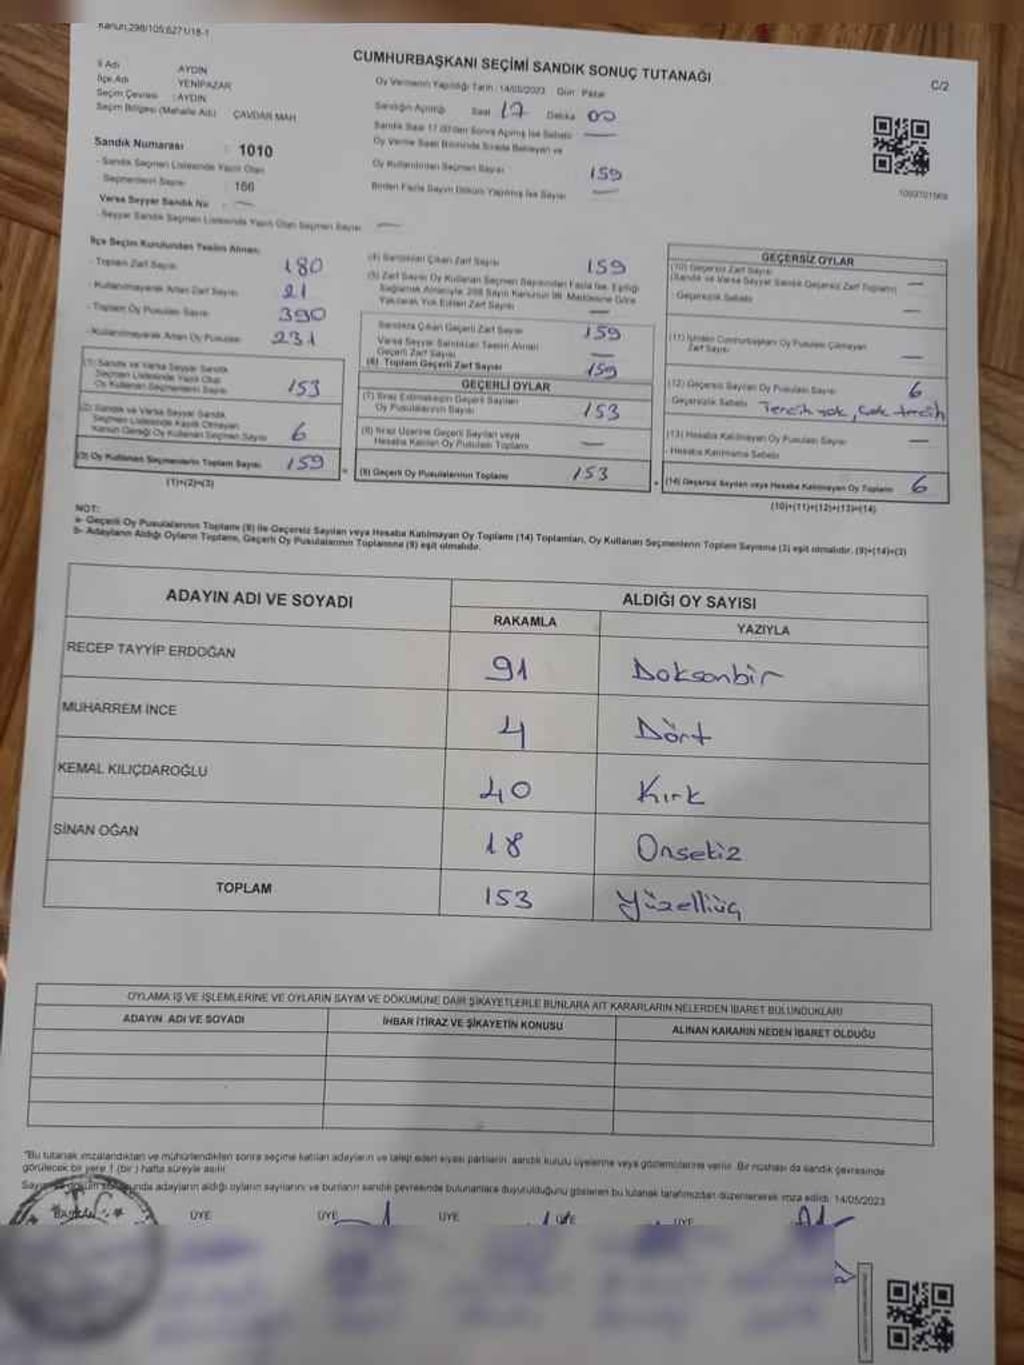 Kanun:298/105;6271/18-1
CUMHURBAŞKANI SEÇİMİ SANDIK SONUÇ TUTANAĞI
C/2
İl Adı AYDIN
İlçe Adı YENİPAZAR
Seçim Çevresi : AYDIN
Seçim Bölgesi (Mahalle Adı) ÇAVDAR MAH
Sandık Numarası : 1010
- Sandık Seçmen Listesinde Yazılı Olan
Seçmenlerin Sayısı 166
Varsa Seyyar Sandık No —
- Seyyar Sandık Seçmen Listesinde Yazılı Olan Seçmen Sayısı —
Oy Vermenin Yapıldığı Tarih : 14/05/2023 Gün : Pazar
Sandığın Açılışı Saat 17 Dakika 00
Sandık Saat 17.00'den Sonra Açılmış İse Sebebi —
Oy Verme Saati Bitiminde Sırada Bekleyen ve
Oy Kullandırılan Seçmen Sayısı 159
Birden Fazla Sayım Döküm Yapılmış İse Sayısı —
İlçe Seçim Kurulundan Teslim Alınan:
- Toplam Zarf Sayısı 180
- Kullanılmayarak Artan Zarf Sayısı 21
- Toplam Oy Pusulası Sayısı 390
- Kullanılmayarak Artan Oy Pusulası 231
(1) Sandık ve Varsa Seyyar Sandık
Seçmen Listesinde Kayıtlı Olup
Oy Kullanan Seçmenlerin Sayısı 153
(2) Sandık ve Varsa Seyyar Sandık
Seçmen Listesinde Kayıtlı Olmayan
Kanun Gereği Oy Kullanan Seçmen Sayısı 6
(3) Oy Kullanan Seçmenlerin Toplam Sayısı 159
(1)+(2)=(3)
(4) Sandıktan Çıkan Zarf Sayısı 159
(5) Zarf Sayısı Oy Kullanan Seçmen Sayısından Fazla İse, Eşitliği
Sağlamak Amacıyla 298 Sayılı Kanunun 98. Maddesine Göre
Yakılarak Yok Edilen Zarf Sayısı —
Sandıkta Çıkan Geçerli Zarf Sayısı 159
Varsa Seyyar Sandıktan Teslim Alınan
Geçerli Zarf Sayısı —
(6) Toplam Geçerli Zarf Sayısı 159
GEÇERLİ OYLAR
(7) İtiraz Edilmeksizin Geçerli Sayılan
Oy Pusulalarının Sayısı 153
(8) İtiraz Üzerine Geçerli Sayılan veya
Hesaba Katılan Oy Pusulası Toplamı —
(9) Geçerli Oy Pusulalarının Toplamı 153
GEÇERSİZ OYLAR
(10) Geçersiz Zarf Sayısı
(Sandık ve Varsa Seyyar Sandık Geçersiz Zarf Toplamı) —
- Geçersizlik Sebebi —
(11) İçinden Cumhurbaşkanı Oy Pusulası Çıkmayan
Zarf Sayısı —
(12) Geçersiz Sayılan Oy Pusulası Sayısı 6
Geçersizlik Sebebi Tercih yok, Çok tercih
(13) Hesaba Katılmayan Oy Pusulası Sayısı —
- Hesaba Katılmama Sebebi
(14) Geçersiz Sayılan veya Hesaba Katılmayan Oy Toplamı 6
(10)+(11)+(12)+(13)=(14)
NOT:
a- Geçerli Oy Pusulalarının Toplamı (9) ile Geçersiz Sayılan veya Hesaba Katılmayan Oy Toplamı (14) Toplamları, Oy Kullanan Seçmenlerin Toplam Sayısına (3) eşit olmalıdır. (9)+(14)=(3)
b- Adayların Aldığı Oyların Toplamı, Geçerli Oy Pusulalarının Toplamına (9) eşit olmalıdır.
ADAYIN ADI VE SOYADI
ALDIĞI OY SAYISI
RAKAMLA YAZIYLA
RECEP TAYYİP ERDOĞAN 91 Doksanbir
MUHARREM İNCE 4 Dört
KEMAL KILIÇDAROĞLU 40 Kırk
SİNAN OĞAN 18 Onsekiz
TOPLAM 153 Yüzelliüç
OYLAMA İŞ VE İŞLEMLERİNE VE OYLARIN SAYIM VE DÖKÜMÜNE DAİR ŞİKAYETLERLE BUNLARA AİT KARARLARIN NELERDEN İBARET BULUNDUKLARI
ADAYIN ADI VE SOYADI İHBAR İTİRAZ VE ŞİKAYETİN KONUSU ALINAN KARARIN NEDEN İBARET OLDUĞU
*Bu tutanak imzalandıktan ve mühürlendikten sonra seçime katılan adayların ve talep eden siyasi partilerin sandık kurulu üyelerine veya gözlemcilerine verilir. Bir nüshası da sandık çevresinde
görülecek bir yere 1 (bir) hafta süreyle asılır.
adayların aldığı oyların sayılarını ve bunların sandık çevresinde bulunanlara duyurulduğunu gösteren bu tutanak tarafımızdan düzenlenerek imza edildi. 14/05/2023
ÜYE ÜYE ÜYE ÜYE ÜYE